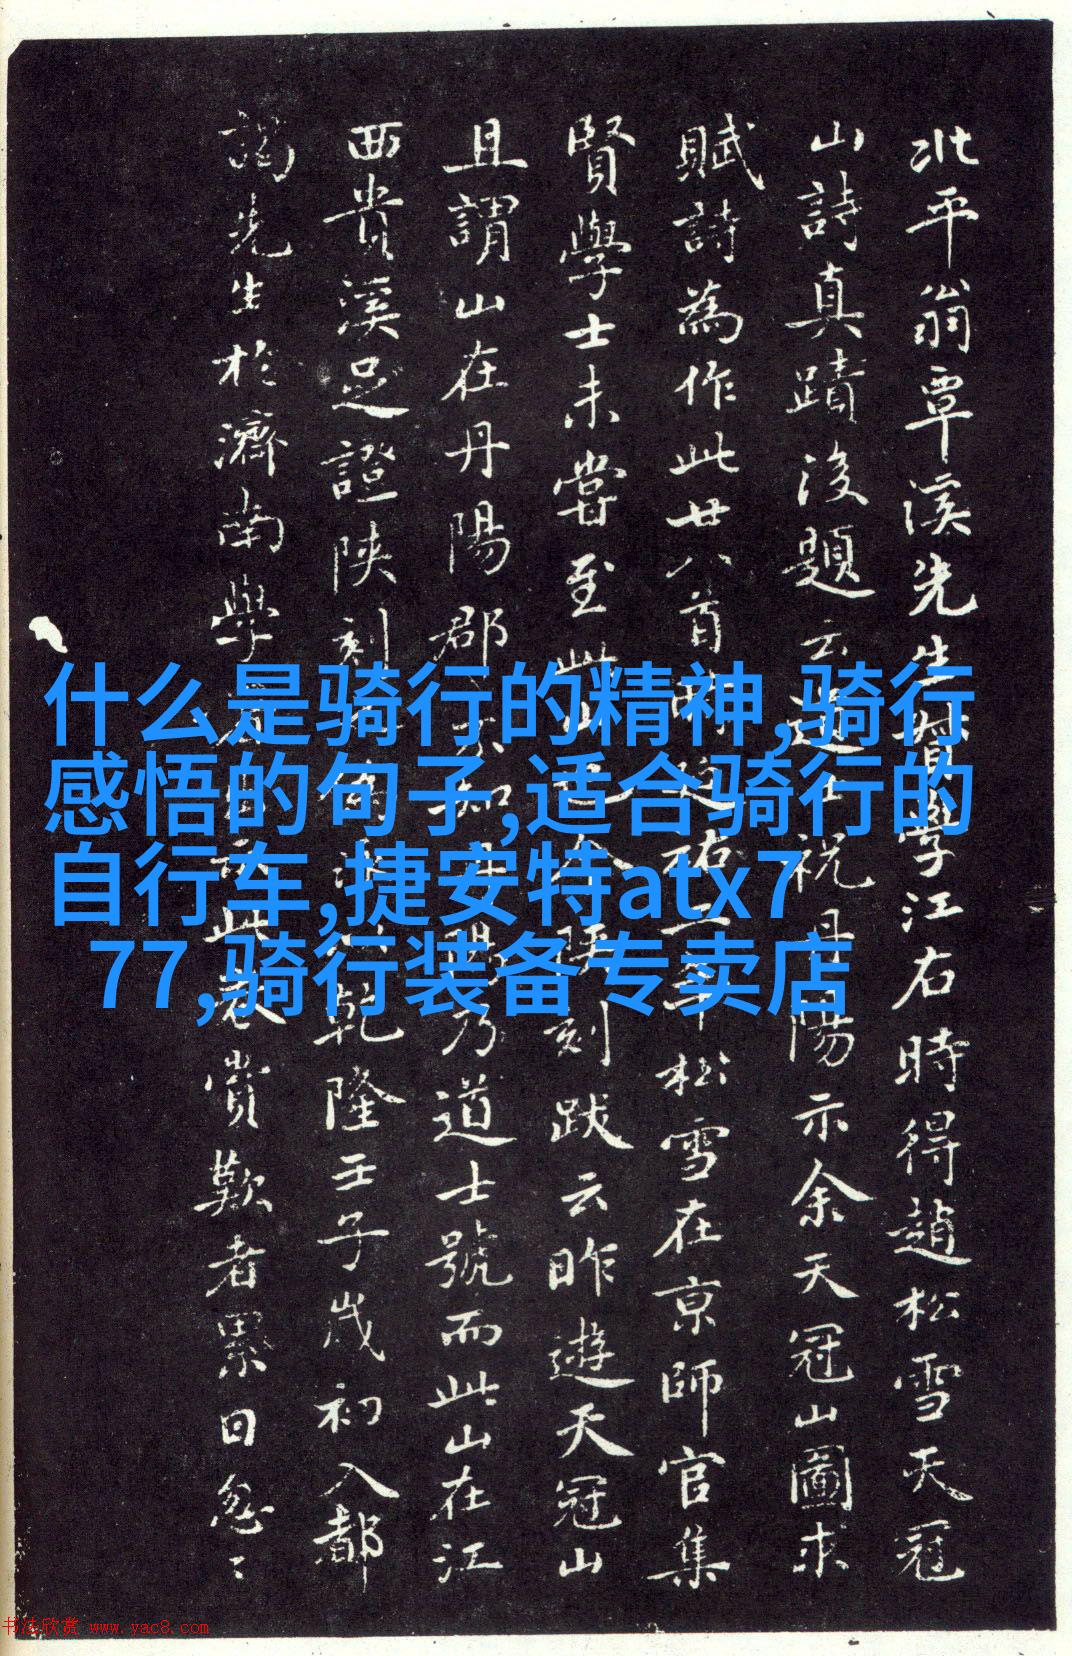 北平翁覃溪先生督學江右時得趙松雪天冠
山詩真蹟後題云道士祝丹陽示余天冠山圖求
賦詩為作此廿八首時延祐二年松雪在京師官集
賢學士未嘗至此山也今陝刻跋云昨遊天冠山
且謂山在丹陽郡不知丹陽乃道士號而此山在江
西貴溪足證陝刻乾隆壬子歲初入都
謁先生於濟南學此卷賞歎者累日怱〻
什么是骑行的精神,骑行
感悟的句子,适合骑行的
自行车,捷安特atx7
77,骑行装备专卖店
书法欣赏 www.yac8.com